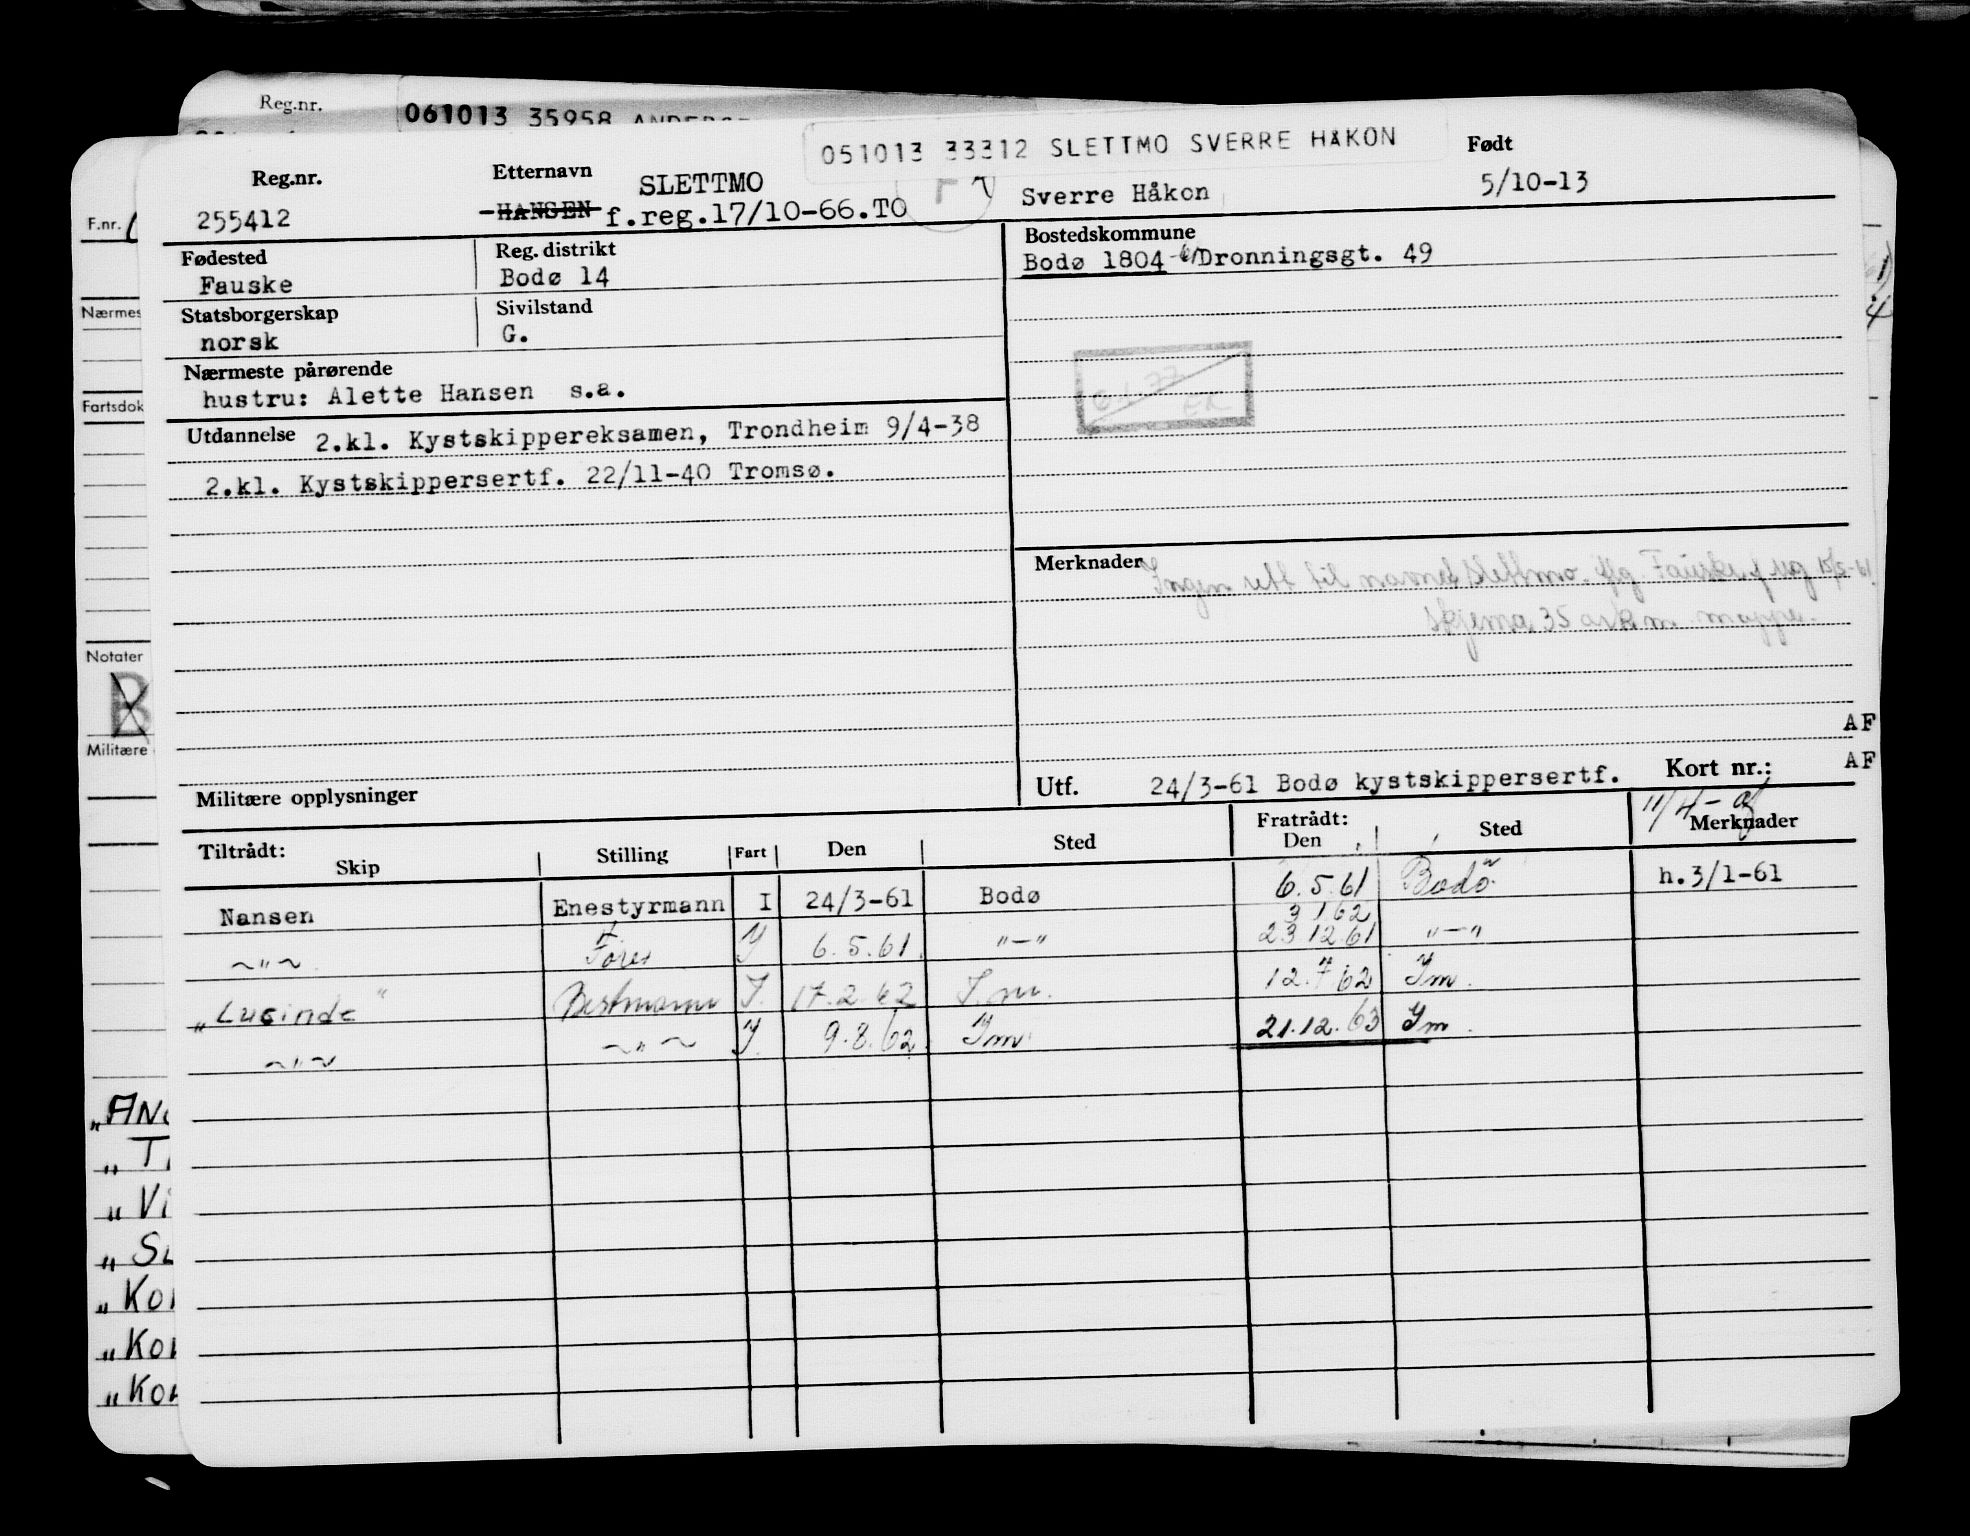 Reg.nr.
061013 35958
051013 33312 SLETTMO SVERRE HÅKON
Reg.nr. Etternavn Født
255412 SLETTMO Sverre Håkon 5/10-13
HANSEN f.reg.17/10-66.TO
F.nr.
Fødested Reg. distrikt Bostedskommune
Fauske Bodø 14 Bodø 1804 Dronningsgt. 49
Statsborgerskap Sivilstand
norsk G.
Nærmeste pårørende
hustru: Alette Hansen s.a.
Utdannelse 2.kl. Kystskippereksamen, Trondheim 9/4-38
2.kl. Kystskippersertf. 22/11-40 Tromsø.
Merknader Ingen rett til navnet Slettmo. Fauske
skjema 35 ark m mappe.
Militære opplysninger
Utf. 24/3-61 Bodø kystskippersertf. Kort nr.:
11/4-
Tiltrådt: Fratrådt:
Skip Stilling Fart Den Sted Den Sted Merknader
Nansen Enestyrmann I 24/3-61 Bodø 6.5.61 Bodø h.3/1-61
3 1 62
~"~ Y 6.5.61 "—" 23 12 61 "—"
"Lucinde" Bestmann J. 17.2.62 J.m. 12.7.62 Ym.
~"~ ~"~ Y 9.8.62 Ym 21.12.63 Ym.
Nærmes
Fartsdok
Notater
B
Militære
AF
AF
"Vi
"Kor
"Kor
"Kor